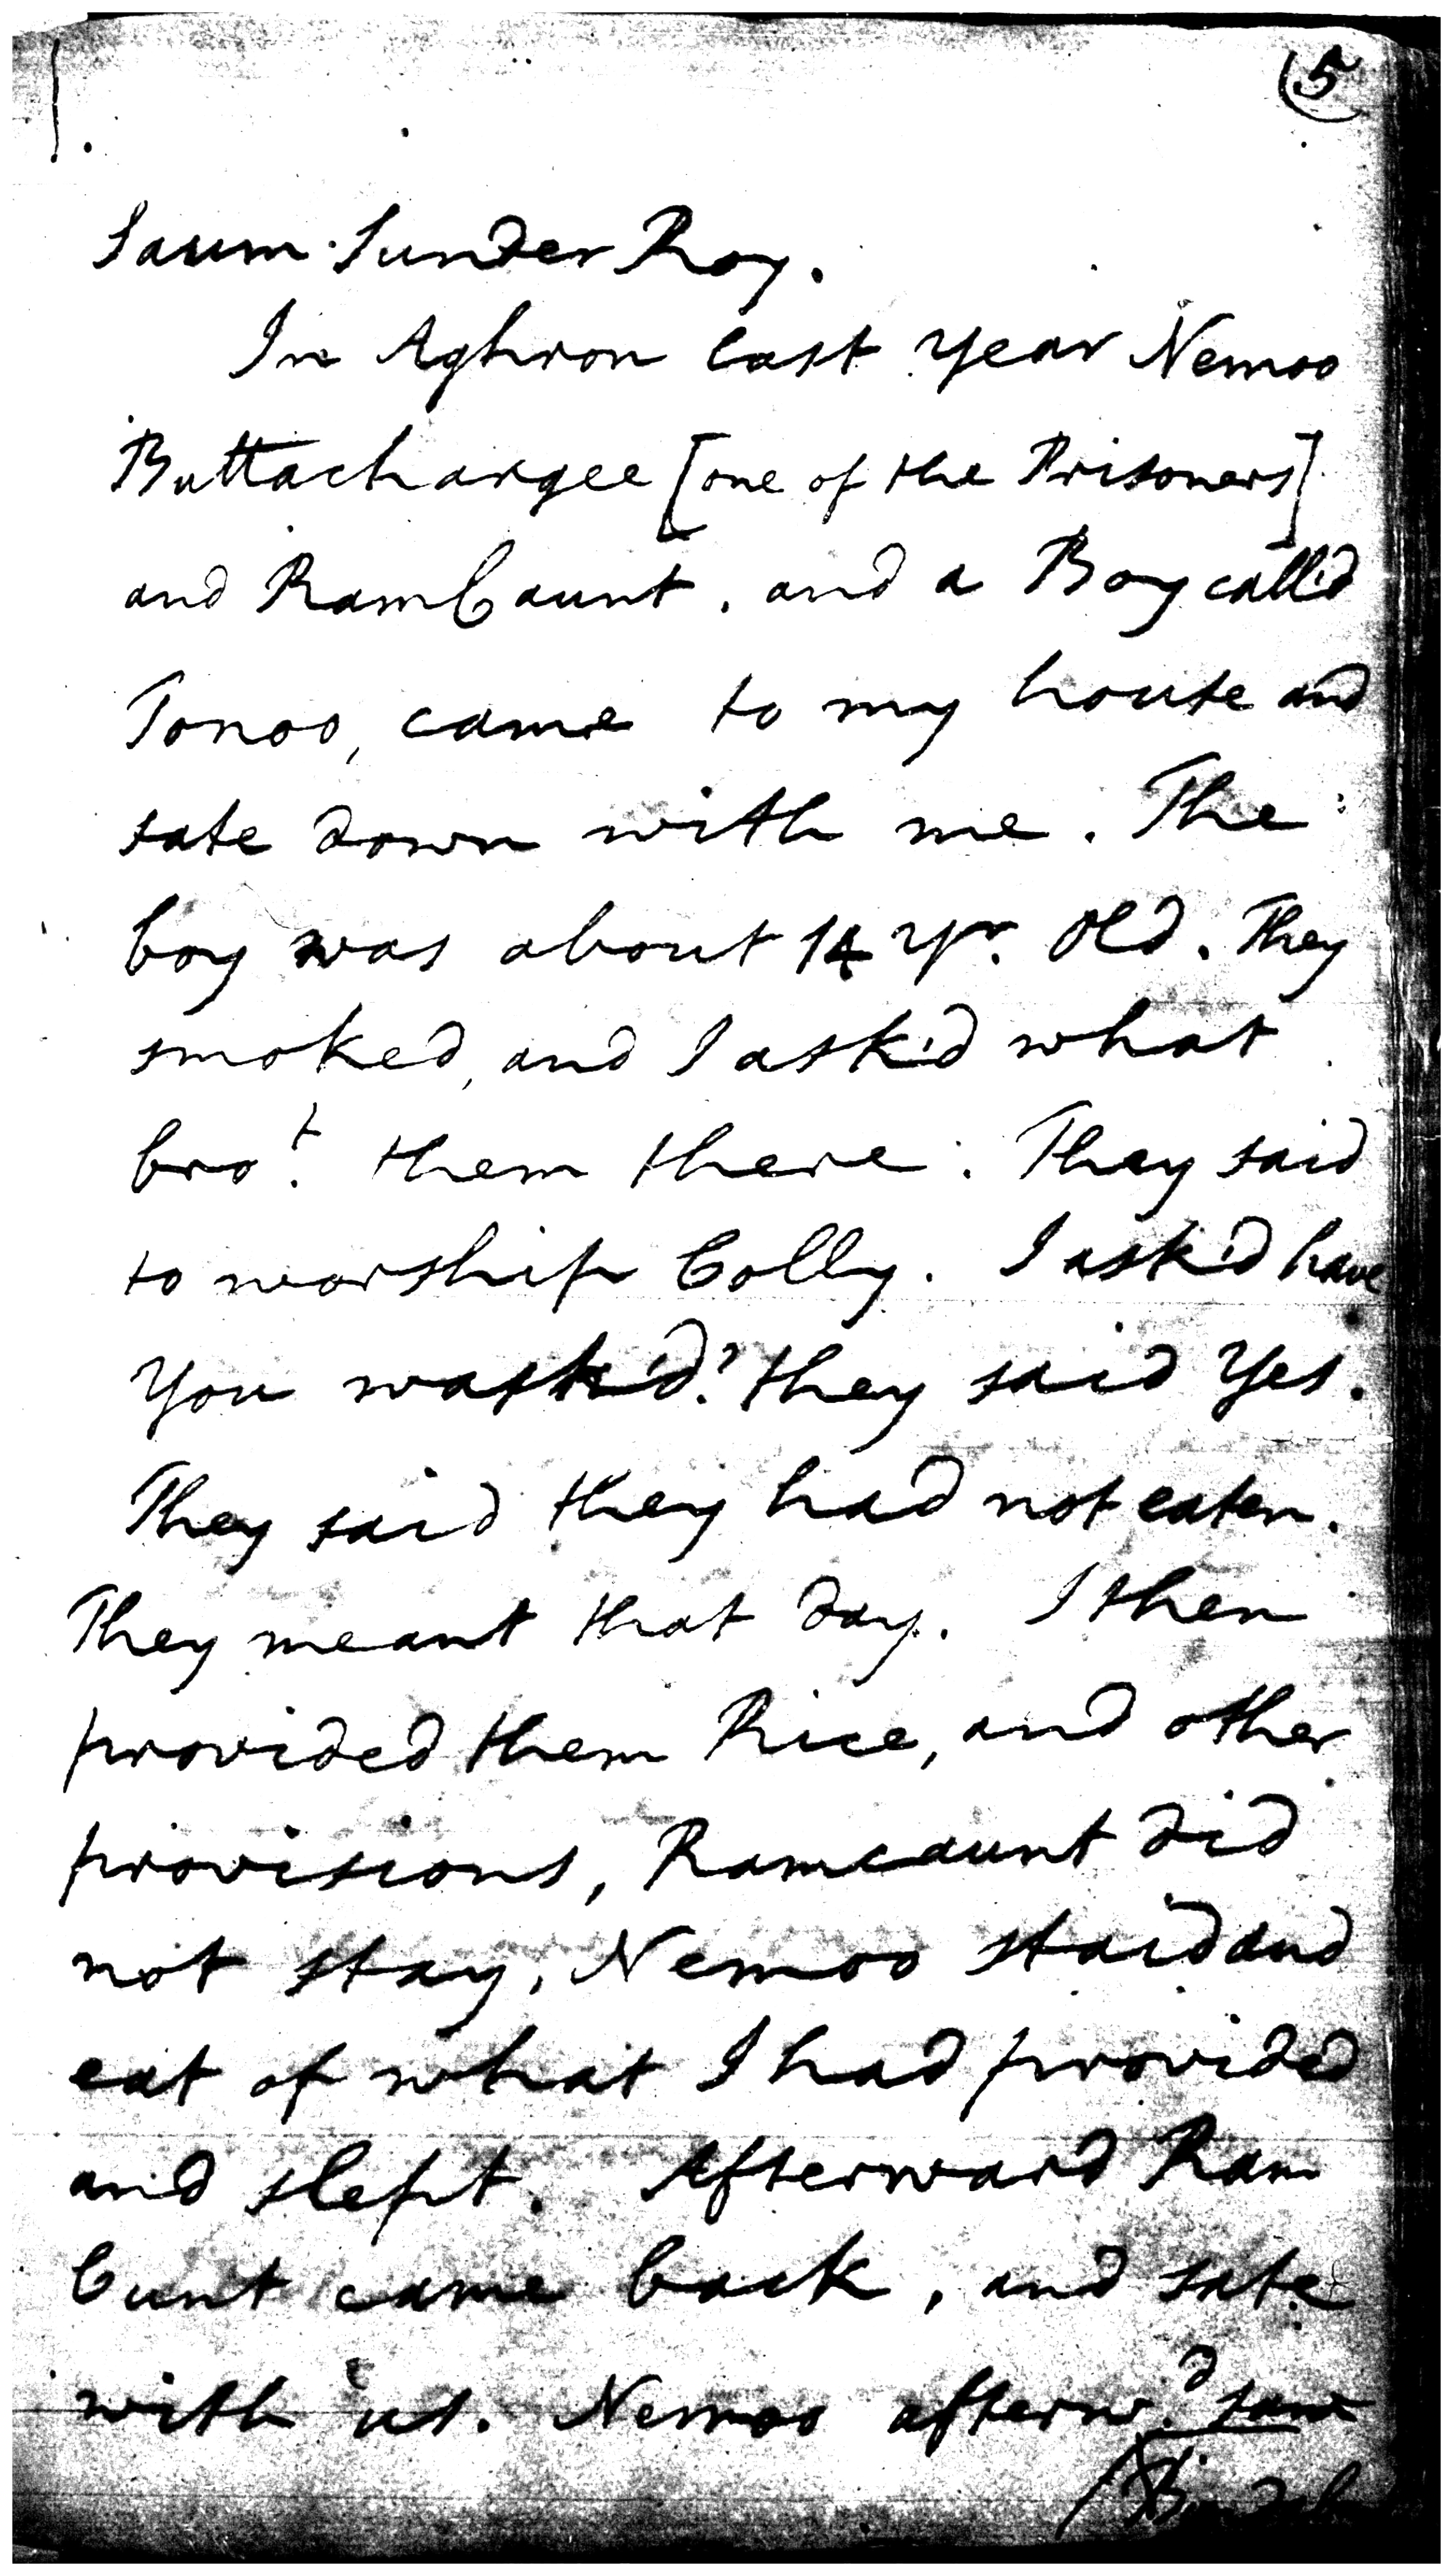 1.
5
Saum Sunder Roy.
In Aghron last year Nemoo
Buttachargee [one of the Prisoners]
and RamCaunt, and a Boy call'd
Tonoo, came to my house and
sate down with me. The
boy was about 14 yr. old. They
smoked, and I ask'd what
bro.t them there: They said
to worship Colly. I ask'd have
you wash'd? they said Yes.
They said they had not eaten.
They meant that day. I then
provided them Rice, and other
provisions, Ramcaunt did
not stay, Nemoo staid and
eat of what I had provided
and slept. Afterward Ram
Cunt came back, and sate
with us. Nemoo afterw.d saw